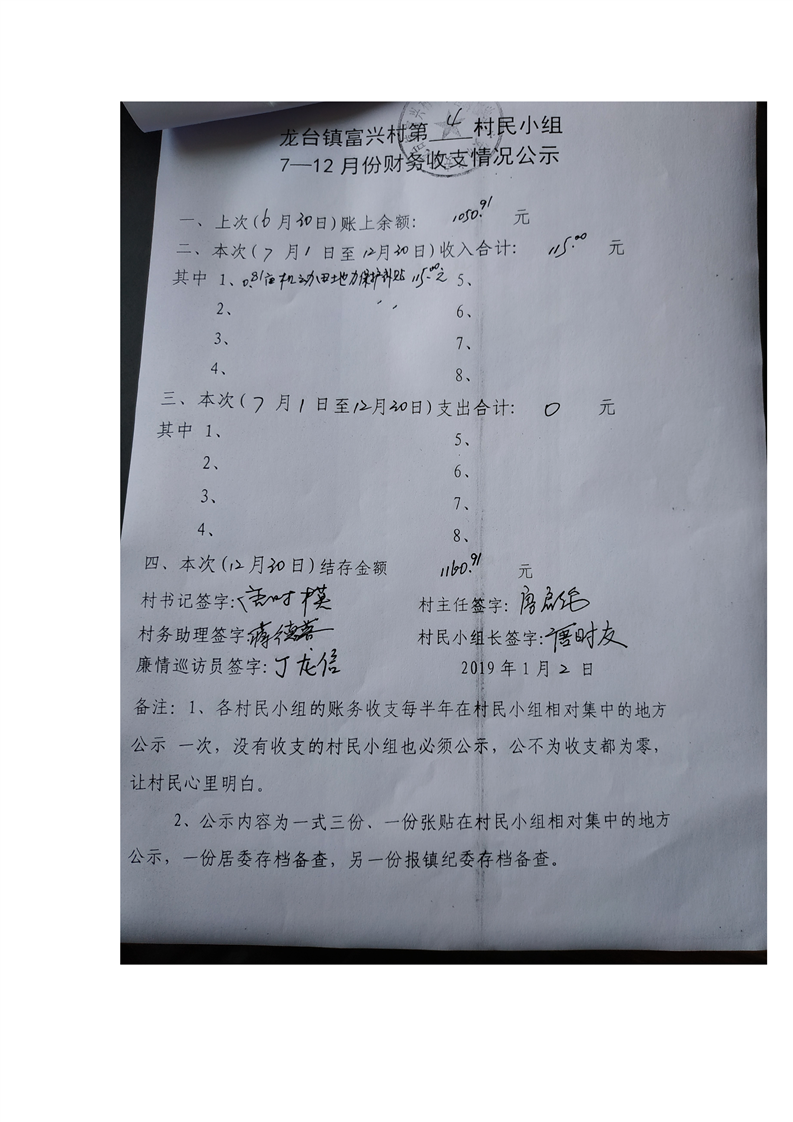 龙台镇富兴村第 4 村民小组
7—12月份财务收支情况公示
一、上次(6月30日)账上余额: 1050.91 元
二、本次(7月1日至12月30日)收入合计: 115.00 元
其中 1、0.81亩机动田地力保护补贴 115.00元 5、
2、 6、
3、 7、
4、 8、
三、本次(7月1日至12月30日)支出合计: 0 元
其中 1、 5、
2、 6、
3、 7、
4、 8、
四、本次(12月30日)结存金额 1160.91 元
村书记签字: 村主任签字:
村务助理签字:蒋德喜 村民小组长签字:唐时友
廉情巡访员签字:丁龙信 2019年1月2日
备注:1、各村民小组的账务收支每半年在村民小组相对集中的地方
公示 一次,没有收支的村民小组也必须公示,公不为收支都为零,
让村民心里明白。
2、公示内容为一式三份、一份张贴在村民小组相对集中的地方
公示,一份居委存档备查,另一份报镇纪委存档备查。